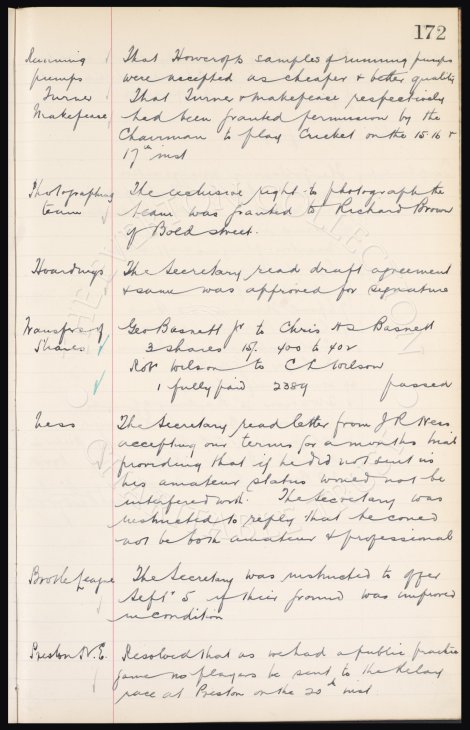 172
Running That Howcrofts samples of running pumps
pumps were accepted as cheaper & better quality
Turner That Turner & Makepeace respectively
Makepeace had been granted permission by the
Chairman to play Cricket on the 15·16 &
17th inst
Photographing The exclusive right to photograph the
team team was granted to Richard Brown
of Bold street.
Hoardings The Secretary read draft agreement
& same was approved for signature
Transfers of Geo Basnett Jr to Chris Basnett
Shares 3 shares 15/- 400 to 402
Robt Wilson to C L Wilson
1 fully paid 2389 passed
Ness The Secretary read letter from J R Ness
accepting our terms for a months trial
providing that if he did not suit us
his amateur status would not be
interfered with. The Secretary was
instructed to reply that he could
not be both amateur & professional
Bootle League The Secretary was instructed to offer
Sept 5 if their ground was improved
in condition
Preston N.E. Resolved that as we had a public practice
game no players be sent to the Relay
race at Preston on the 20th inst